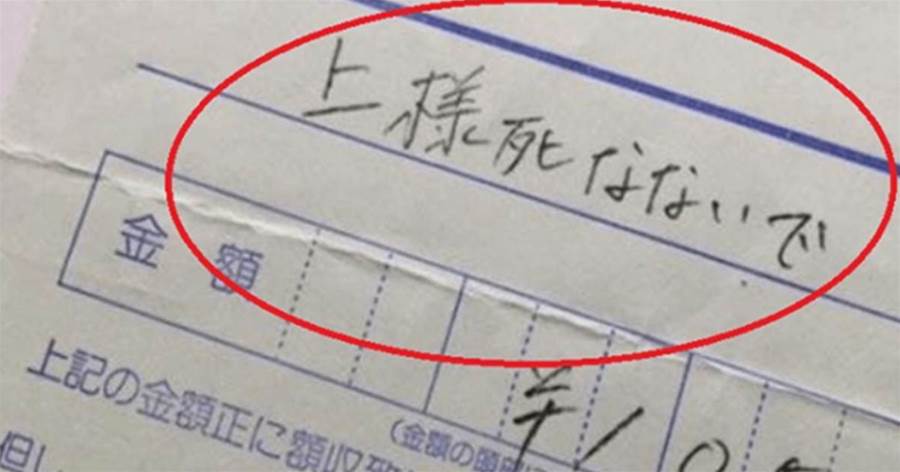 上様死なないで
金額
¥10
上記の金額正に領収致
(金額の
但し